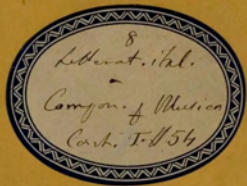 8
Letterat. ital.
Compon. p Musica
Cart. I. N 54